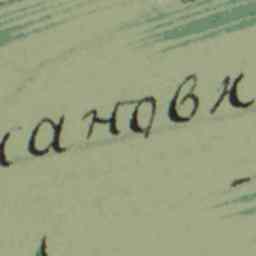 ановк